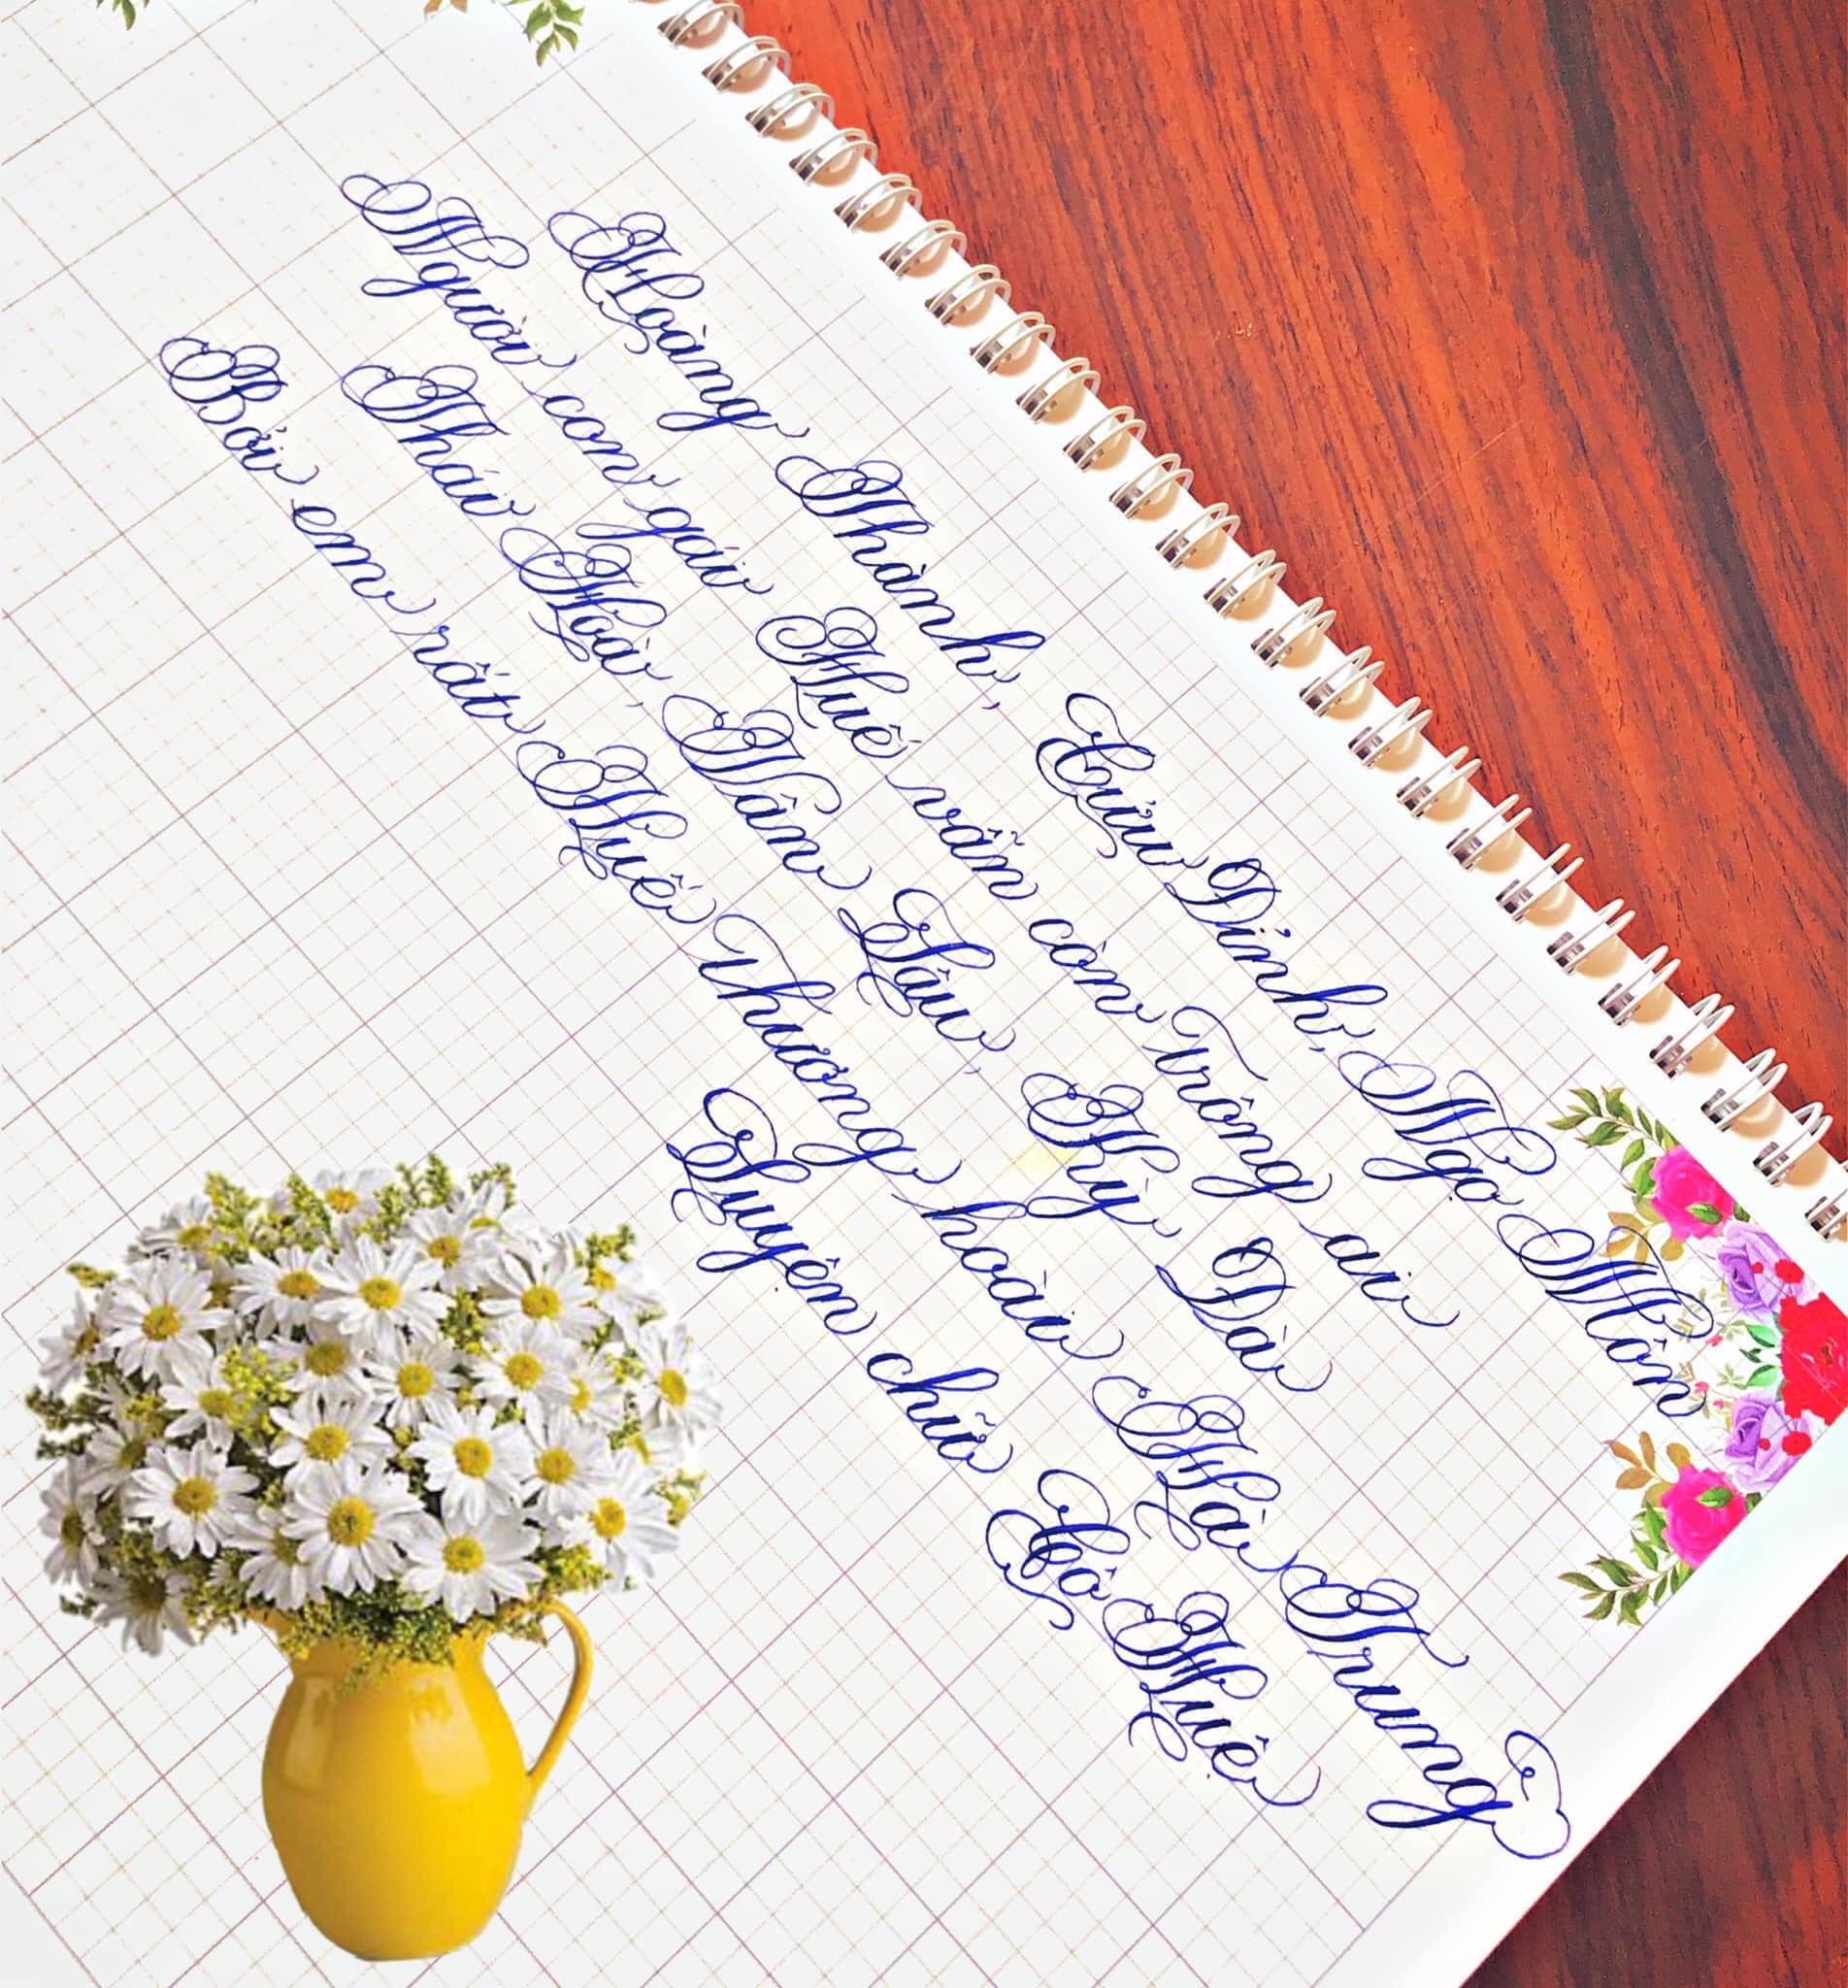 Hoàng Thành, Cửu Đỉnh, Ngọ Môn
Người con gái Huế vẫn còn Trông ai
Thái Hoà, Vân Lâu, Thỳ Dà
Bởi em rất Huế Thương hoài Hà Trung
Luyện chữ Cố Huệ